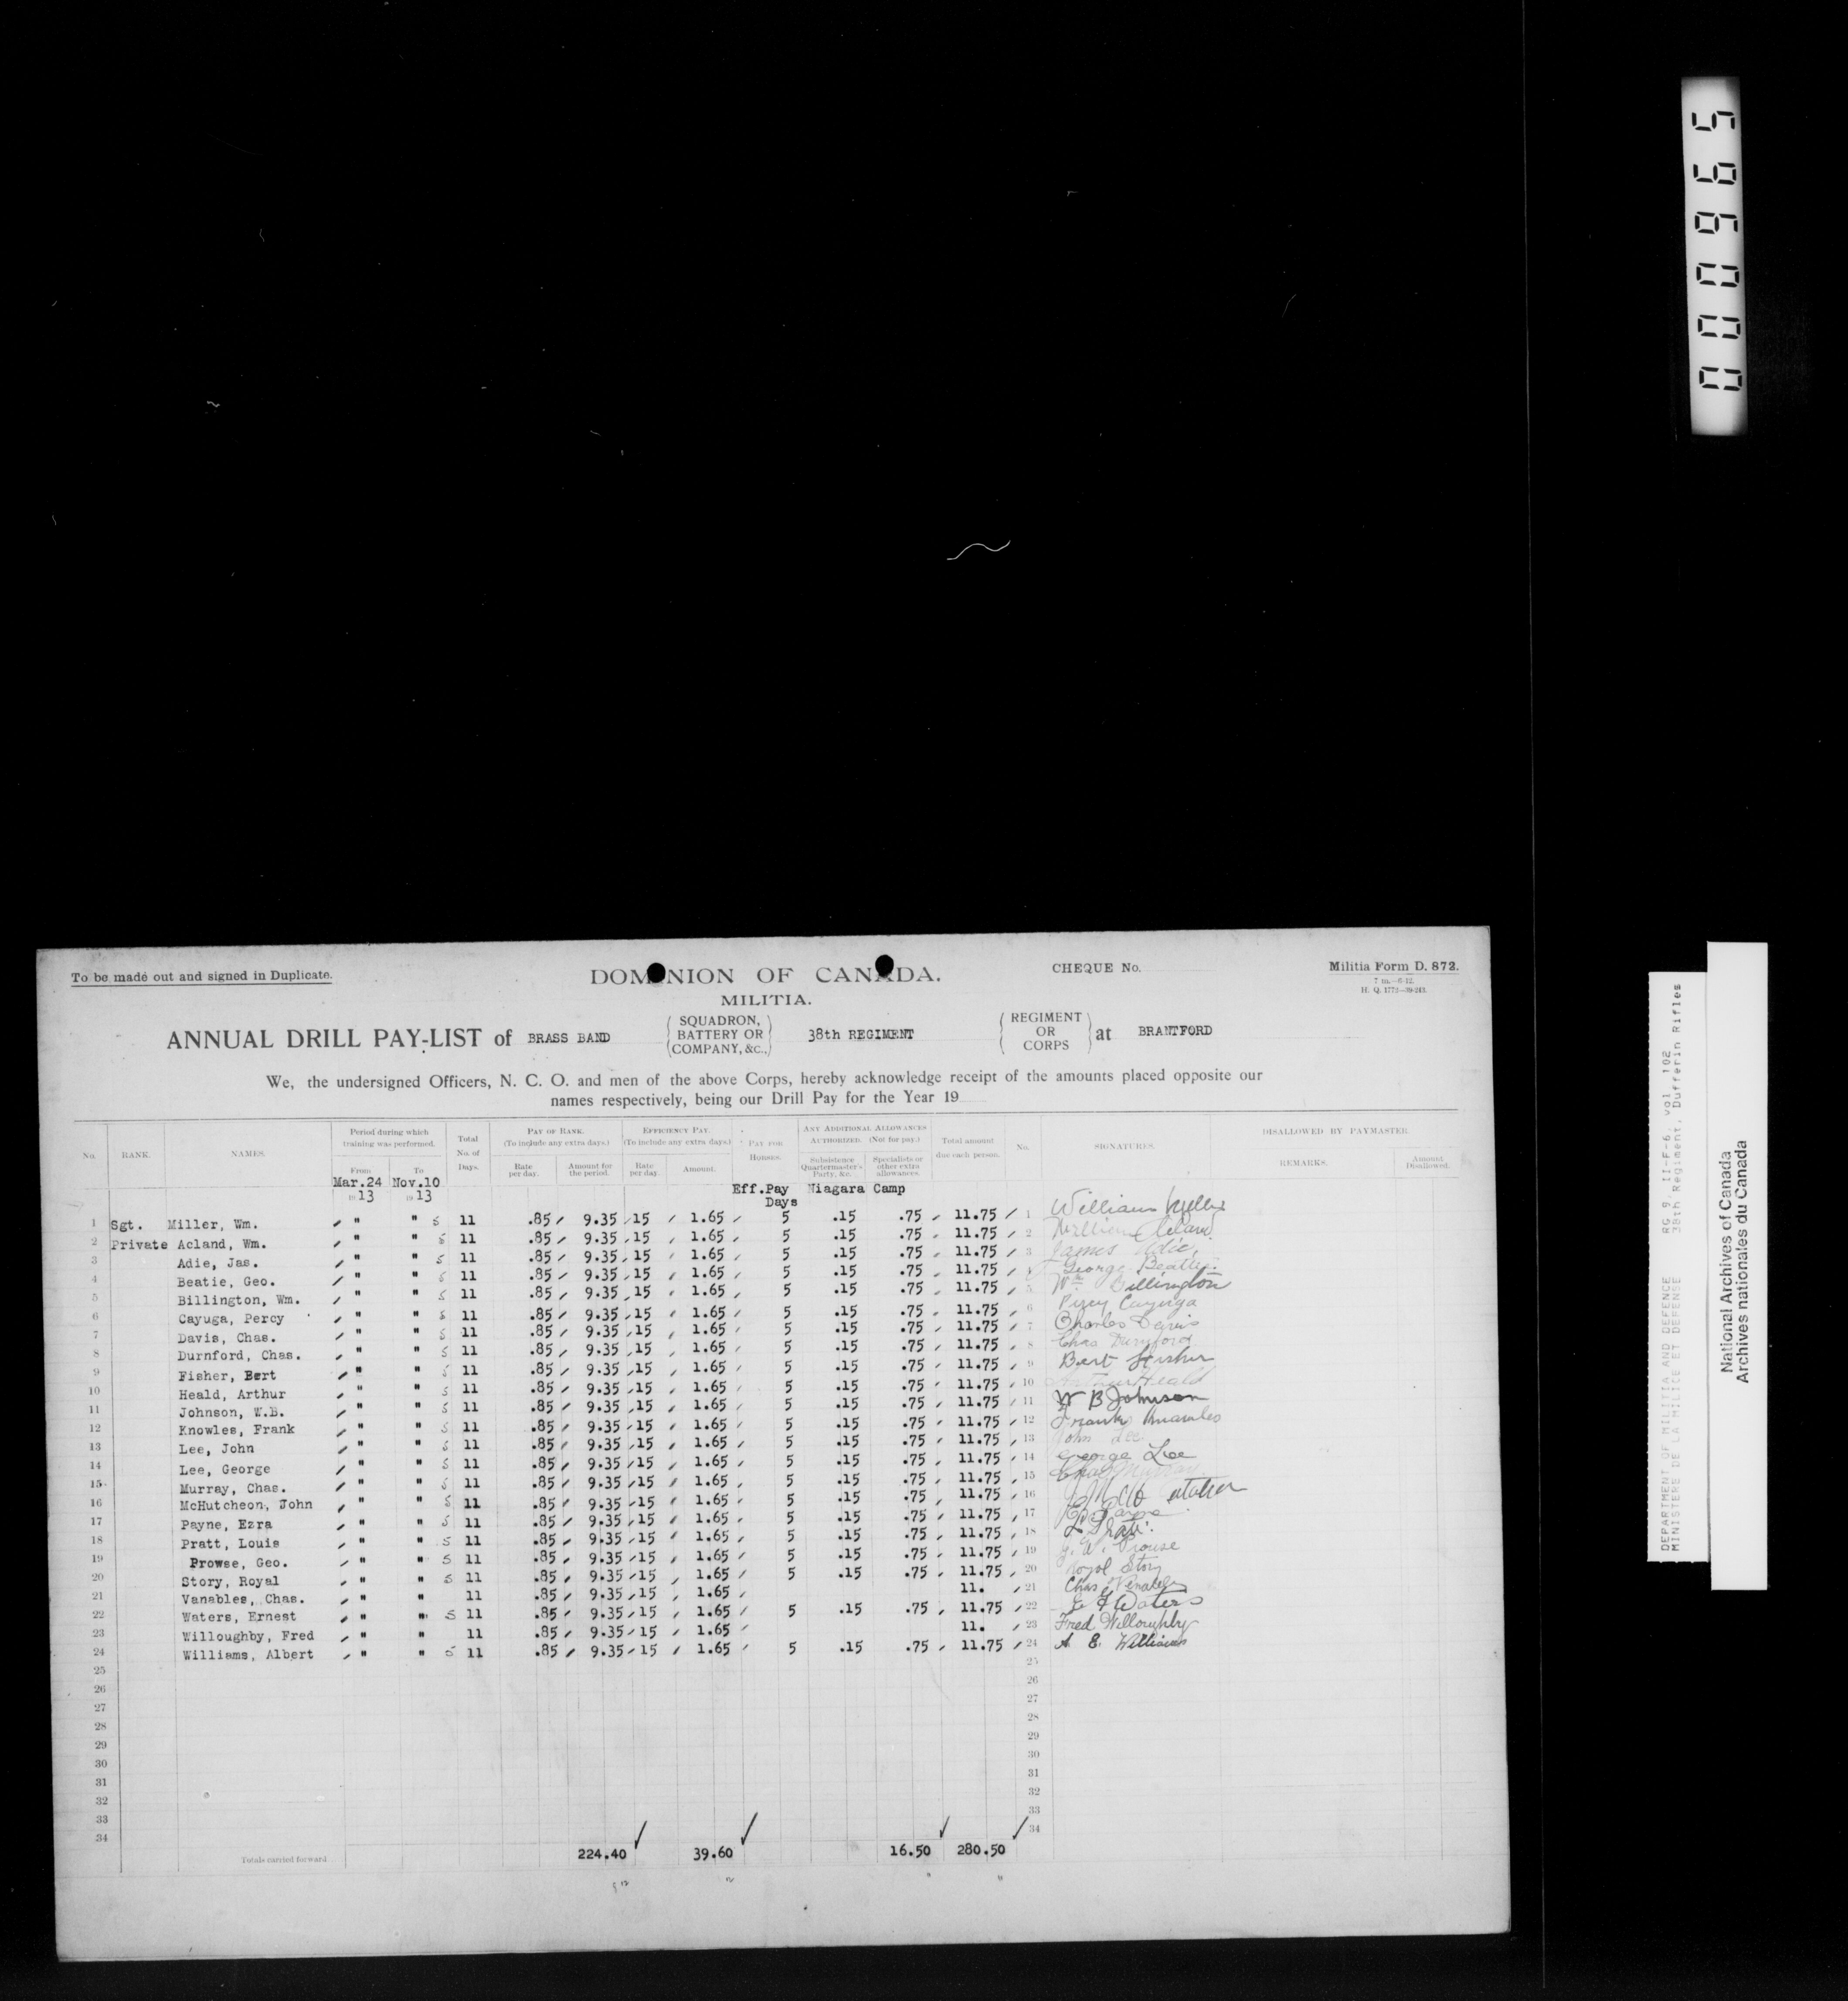 000965
To be made out and signed in Duplicate.
DOMINION OF CANADA.
CHEQUE No.
Militia Form D. 872.
7 m.—6-12.
H. Q. 1772—39-243.
MILITIA.
ANNUAL DRILL PAY-LIST of BRASS BAND (SQUADRON, BATTERY OR COMPANY, &c.,) 38th REGIMENT (REGIMENT OR CORPS) at BRANTFORD
We, the undersigned Officers, N. C. O. and men of the above Corps, hereby acknowledge receipt of the amounts placed opposite our
names respectively, being our Drill Pay for the Year 19
No. RANK. NAMES. Period during which training was performed. From To Total No. of Days. PAY OF RANK. (To include any extra days.) Rate per day. Amount for the period. EFFICIENCY PAY. (To include any extra days.) Rate per day. Amount. PAY FOR HORSES. ANY ADDITIONAL ALLOWANCES AUTHORIZED. (Not for pay.) Subsistence Quartermaster's Party, &c. Specialists or other extra allowances. Total amount due each person. No. SIGNATURES. DISALLOWED BY PAYMASTER. REMARKS. Amount Disallowed.
Mar.24 Nov.10 Eff.Pay Niagara Camp
19 13 19 13 Days
1 Sgt. Miller, Wm. " " 5 11 .85 9.35 15 1.65 5 .15 .75 11.75 1 William Miller
2 Private Acland, Wm. " " 5 11 .85 9.35 15 1.65 5 .15 .75 11.75 2 William Acland
3 Adie, Jas. " " 5 11 .85 9.35 15 1.65 5 .15 .75 11.75 3 James Adie
4 Beatie, Geo. " " 5 11 .85 9.35 15 1.65 5 .15 .75 11.75 4 George Beattie
5 Billington, Wm. " " 5 11 .85 9.35 15 1.65 5 .15 .75 11.75 5 Wm Billington
6 Cayuga, Percy " " 5 11 .85 9.35 15 1.65 5 .15 .75 11.75 6 Percy Cayuga
7 Davis, Chas. " " 5 11 .85 9.35 15 1.65 5 .15 .75 11.75 7 Charles Davis
8 Durnford, Chas. " " 5 11 .85 9.35 15 1.65 5 .15 .75 11.75 8 Chas Durnford
9 Fisher, Bert " " 5 11 .85 9.35 15 1.65 5 .15 .75 11.75 9 Bert Fisher
10 Heald, Arthur " " 5 11 .85 9.35 15 1.65 5 .15 .75 11.75 10 Arthur Heald
11 Johnson, W.B. " " 5 11 .85 9.35 15 1.65 5 .15 .75 11.75 11 W B Johnson
12 Knowles, Frank " " 5 11 .85 9.35 15 1.65 5 .15 .75 11.75 12 Frank Knowles
13 Lee, John " " 5 11 .85 9.35 15 1.65 5 .15 .75 11.75 13 John Lee
14 Lee, George " " 5 11 .85 9.35 15 1.65 5 .15 .75 11.75 14 George Lee
15 Murray, Chas. " " 5 11 .85 9.35 15 1.65 5 .15 .75 11.75 15 Chas Murray
16 McHutcheon, John " " 5 11 .85 9.35 15 1.65 5 .15 .75 11.75 16
17 Payne, Ezra " " 5 11 .85 9.35 15 1.65 5 .15 .75 11.75 17
18 Pratt, Louis " " 5 11 .85 9.35 15 1.65 5 .15 .75 11.75 18 L. Pratt
19 Prowse, Geo. " " 5 11 .85 9.35 15 1.65 5 .15 .75 11.75 19 G. W. Prowse
20 Story, Royal " " 5 11 .85 9.35 15 1.65 5 .15 .75 11.75 20 Royal Story
21 Vanables, Chas. " " 11 .85 9.35 15 1.65 11. 21 Chas Venables
22 Waters, Ernest " " 5 11 .85 9.35 15 1.65 5 .15 .75 11.75 22 E F Waters
23 Willoughby, Fred " " 11 .85 9.35 15 1.65 11. 23 Fred Willoughby
24 Williams, Albert " " 5 11 .85 9.35 15 1.65 5 .15 .75 11.75 24 A. E. Williams
25 25
26 26
27 27
28 28
29 29
30 30
31 31
32 32
33 33
34 34
Totals carried forward 224.40 39.60 16.50 280.50
DEPARTMENT OF MILITIA AND DEFENCE RG 9, II-F-6, vol 102
MINISTERE DE LA MILICE ET DEFENSE 38th Regiment, Dufferin Rifles
National Archives of Canada
Archives nationales du Canada